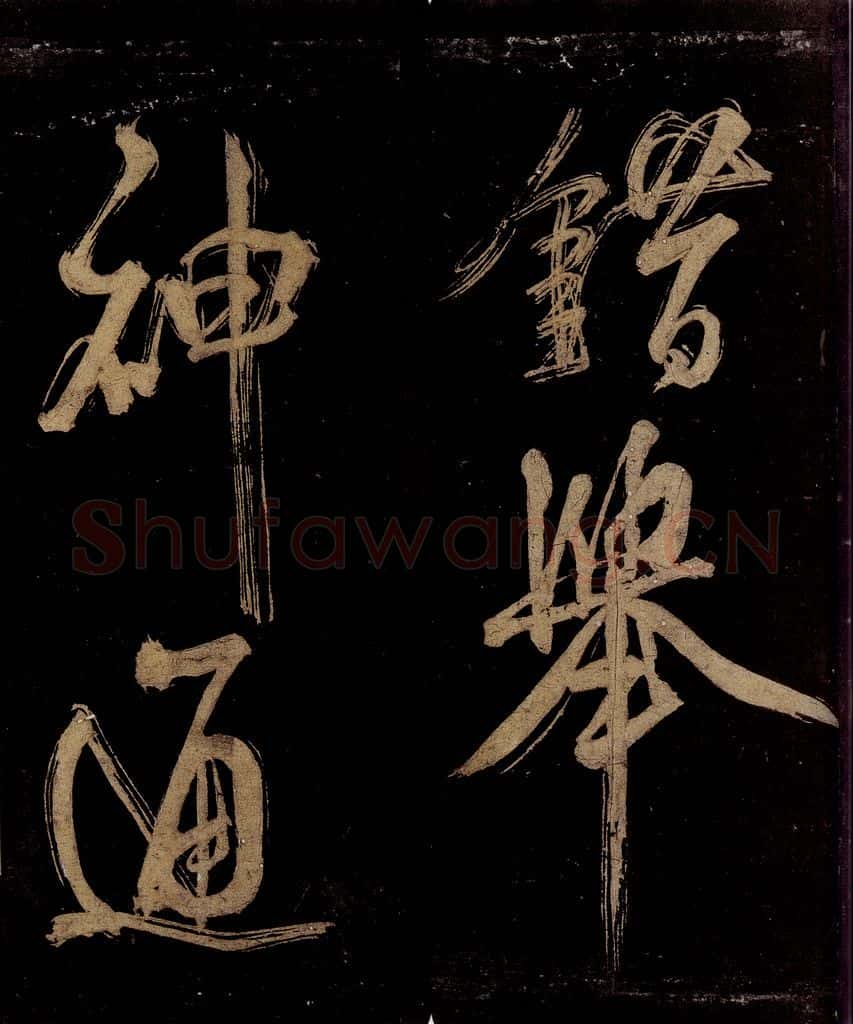 錯舉
神通
Shufawang.CN